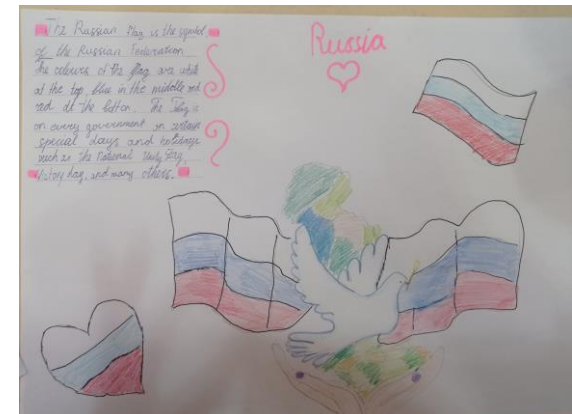 The Russian Flag is the symbol
of the Russian Federation
the colours of the flag are white
at the top, blue in the middle and
red at the bottom. The flag is
on every government on certain
special days and holidays
such as the National Unity Day,
Victory day, and many others.
Russia